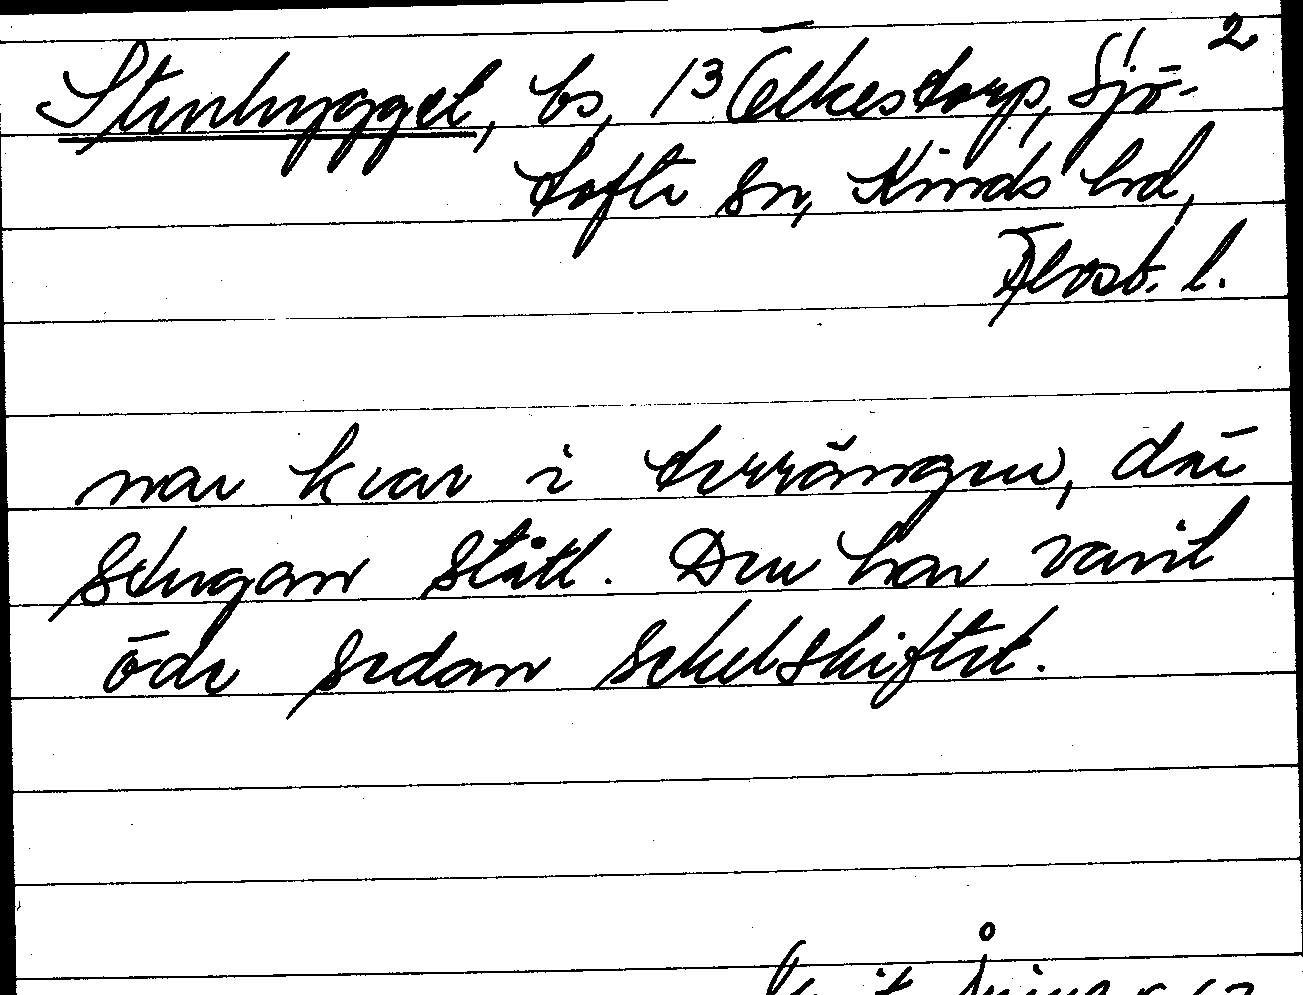 2
Stenhygget, bs, 13 Ölkestorp, Sjö-
tofta sn, Kinds hd,
Älvsb. l.
nar kvar i terrängen, där
stugan stått. Den har varit
öde sedan sekelskiftet.